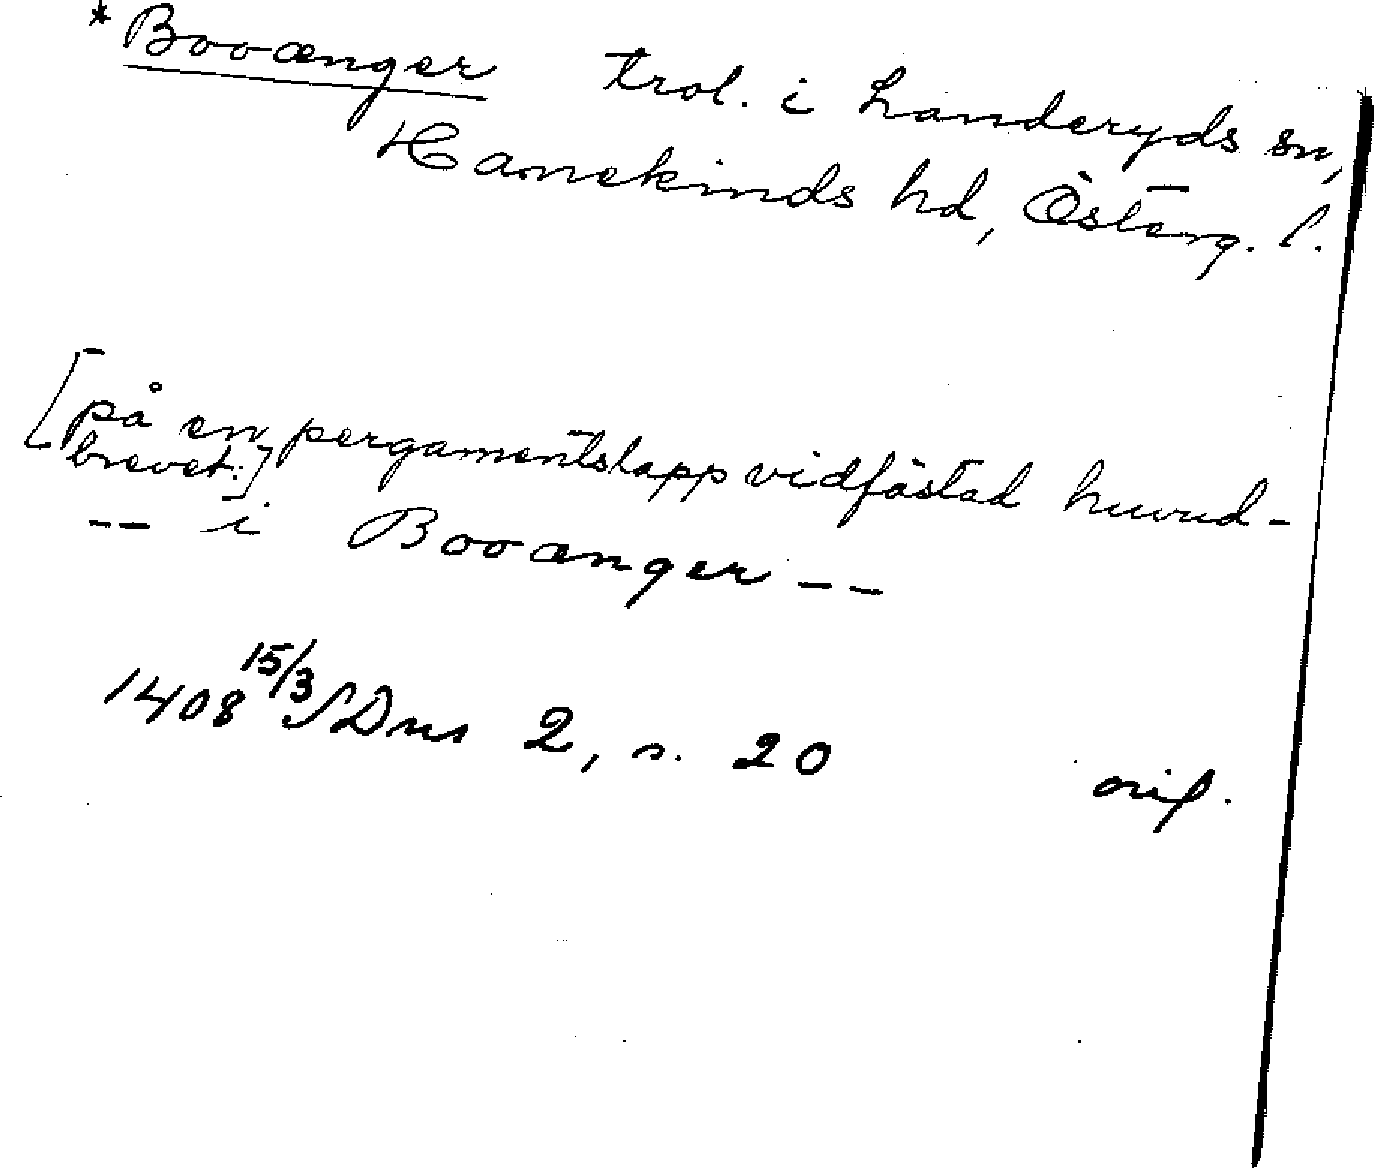 *Booænger trol. i Landeryds sn,
Hanekinds hd, Österg. l.
[på en pergamentslapp vidfästad huvud-
brevet:]
-- i Booænger --
1408 15/3 SDns 2, s. 20 orig.